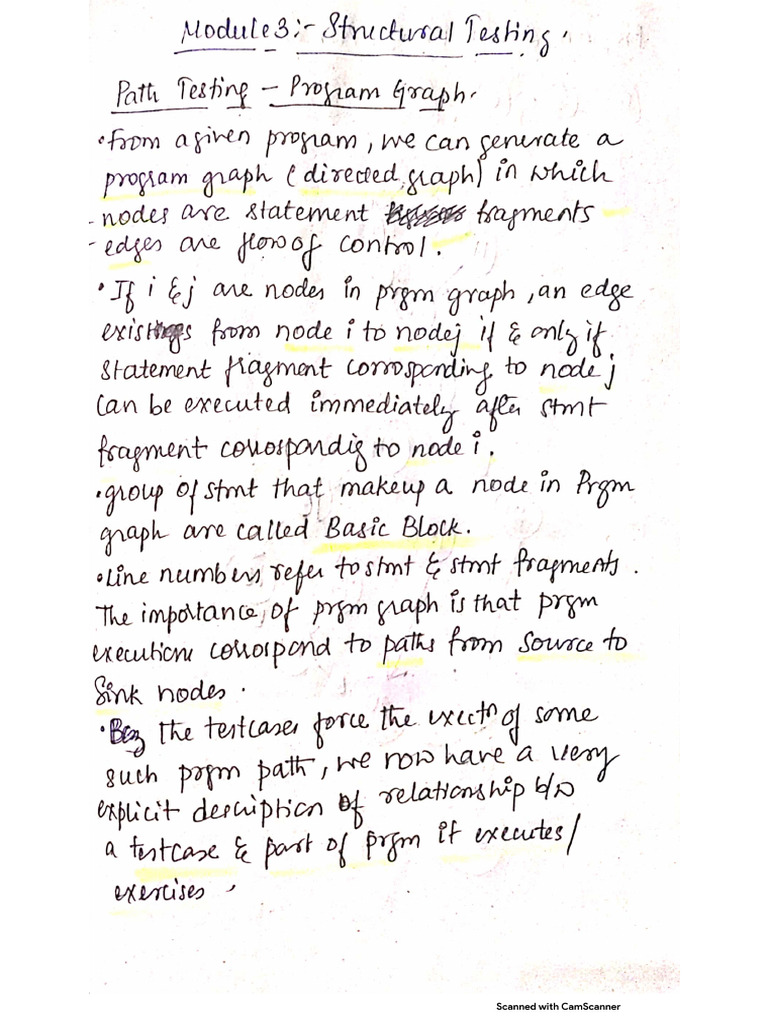 Module 3:- Structural Testing.
Path Testing - Program Graph.
• From a given program, we can generate a
program graph (directed graph) in which
- nodes are statement fragments
- edges are flow of control.
• If i & j are nodes in prgm graph, an edge
exists from node i to node j if & only if
statement fragment corrosponding to node j
can be executed immediately after stmt
fragment corrospondig to node i.
• group of stmt that makeup a node in Prgm
graph are called Basic Block.
• Line numbers refer to stmt & stmt fragments.
The importance of prgm graph is that prgm
executions corrospond to paths from Source to
Sink nodes.
• Bcz the testcases force the exectn of some
such prgm path, we now have a very
explicit description of relationship b/w
a testcase & part of prgm it executes/
exercises.
Scanned with CamScanner